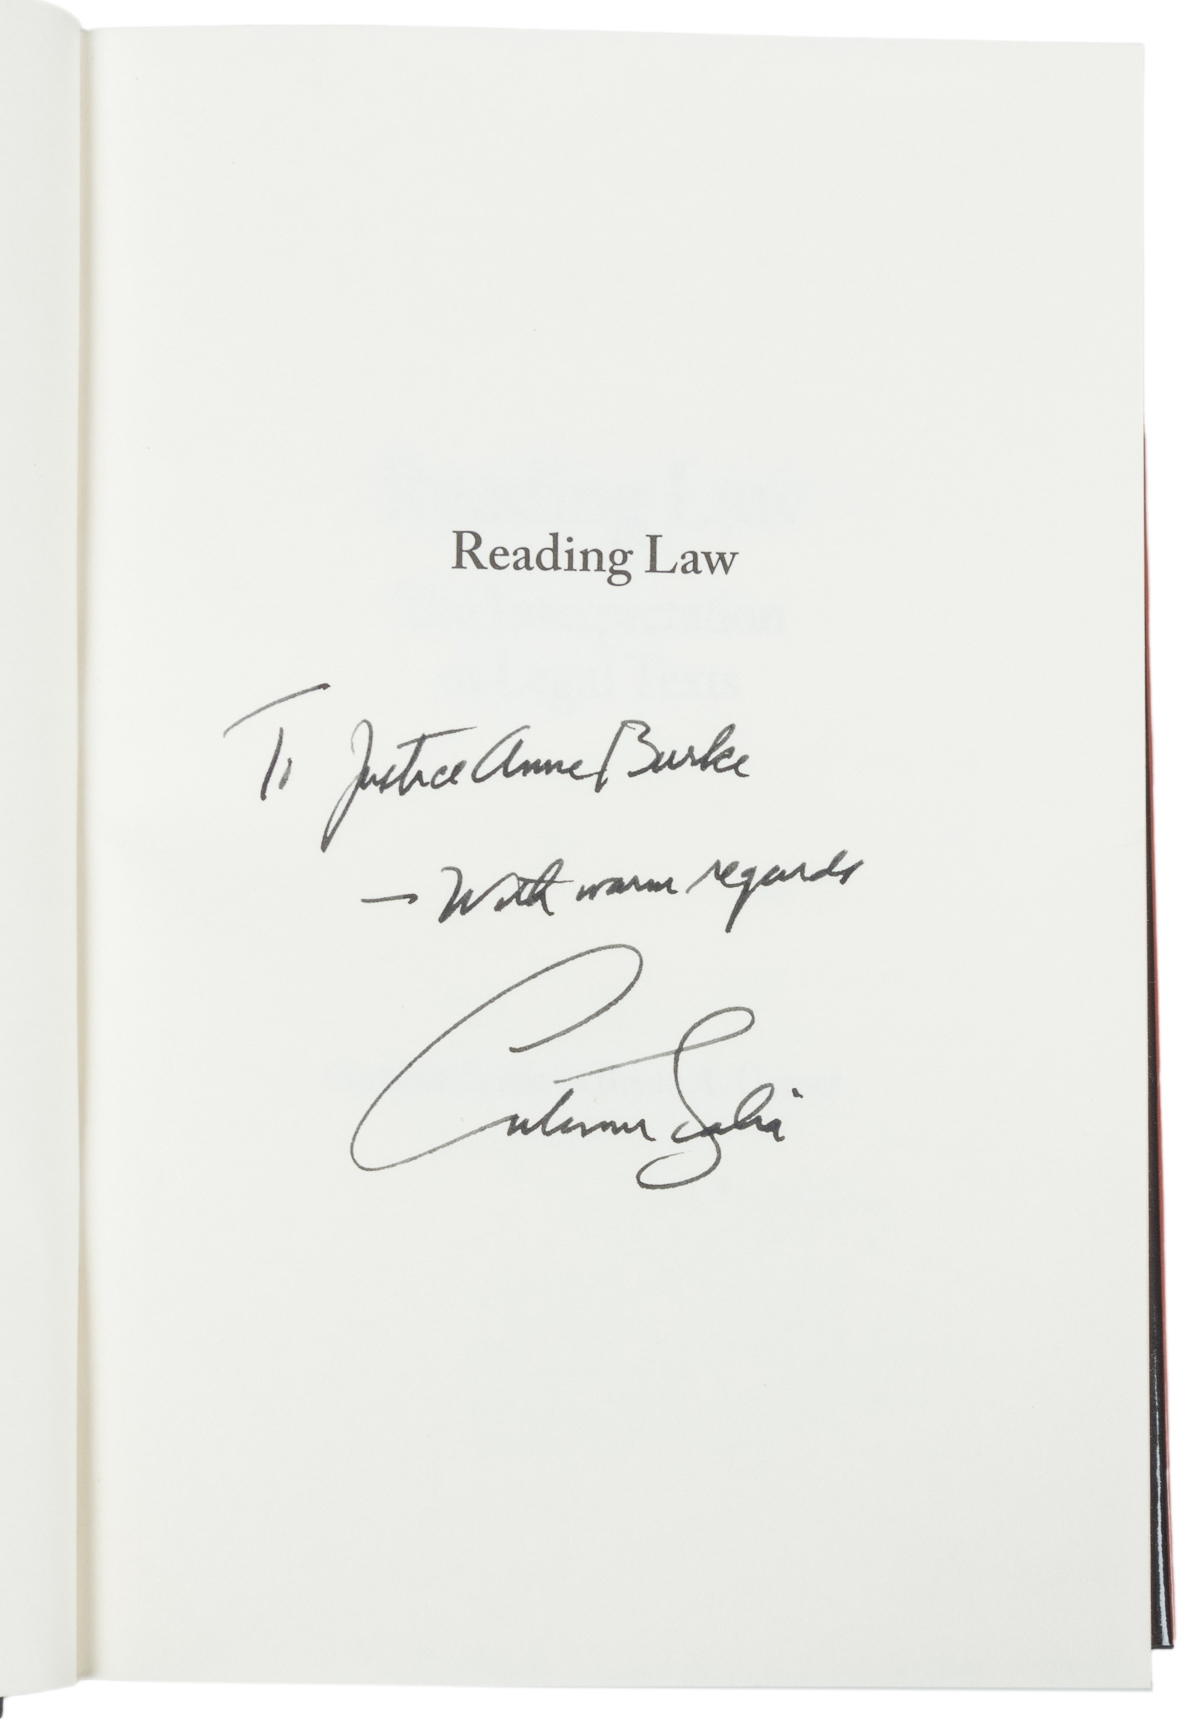 Reading Law
To Justice Anne Burke
– With warm regards
Antonin Scalia